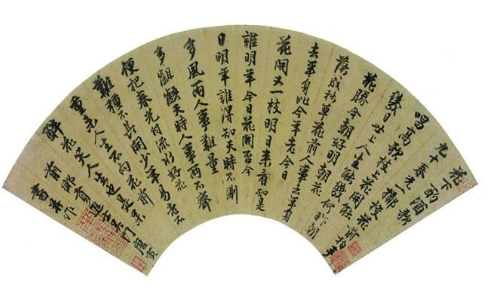 花下酌酒歌
九十春光一擲梭花前酌酒
唱高歌枝上花開能
幾日世上人生能幾何昨朝
花勝今朝好明朝花
落成秋草花前人是
去年身今年人比去年老今日
花開又一枝明日來看知是
誰明年今日花開否今
日明年誰得知天時不測
多風雨人事難量
多齟齬天時人事兩不齊
便把春光付流水好花
難種不長開少年易老不
重來人生不向花前
醉花笑人生也是呆
前鄉貢進士吳門唐寅
書并作